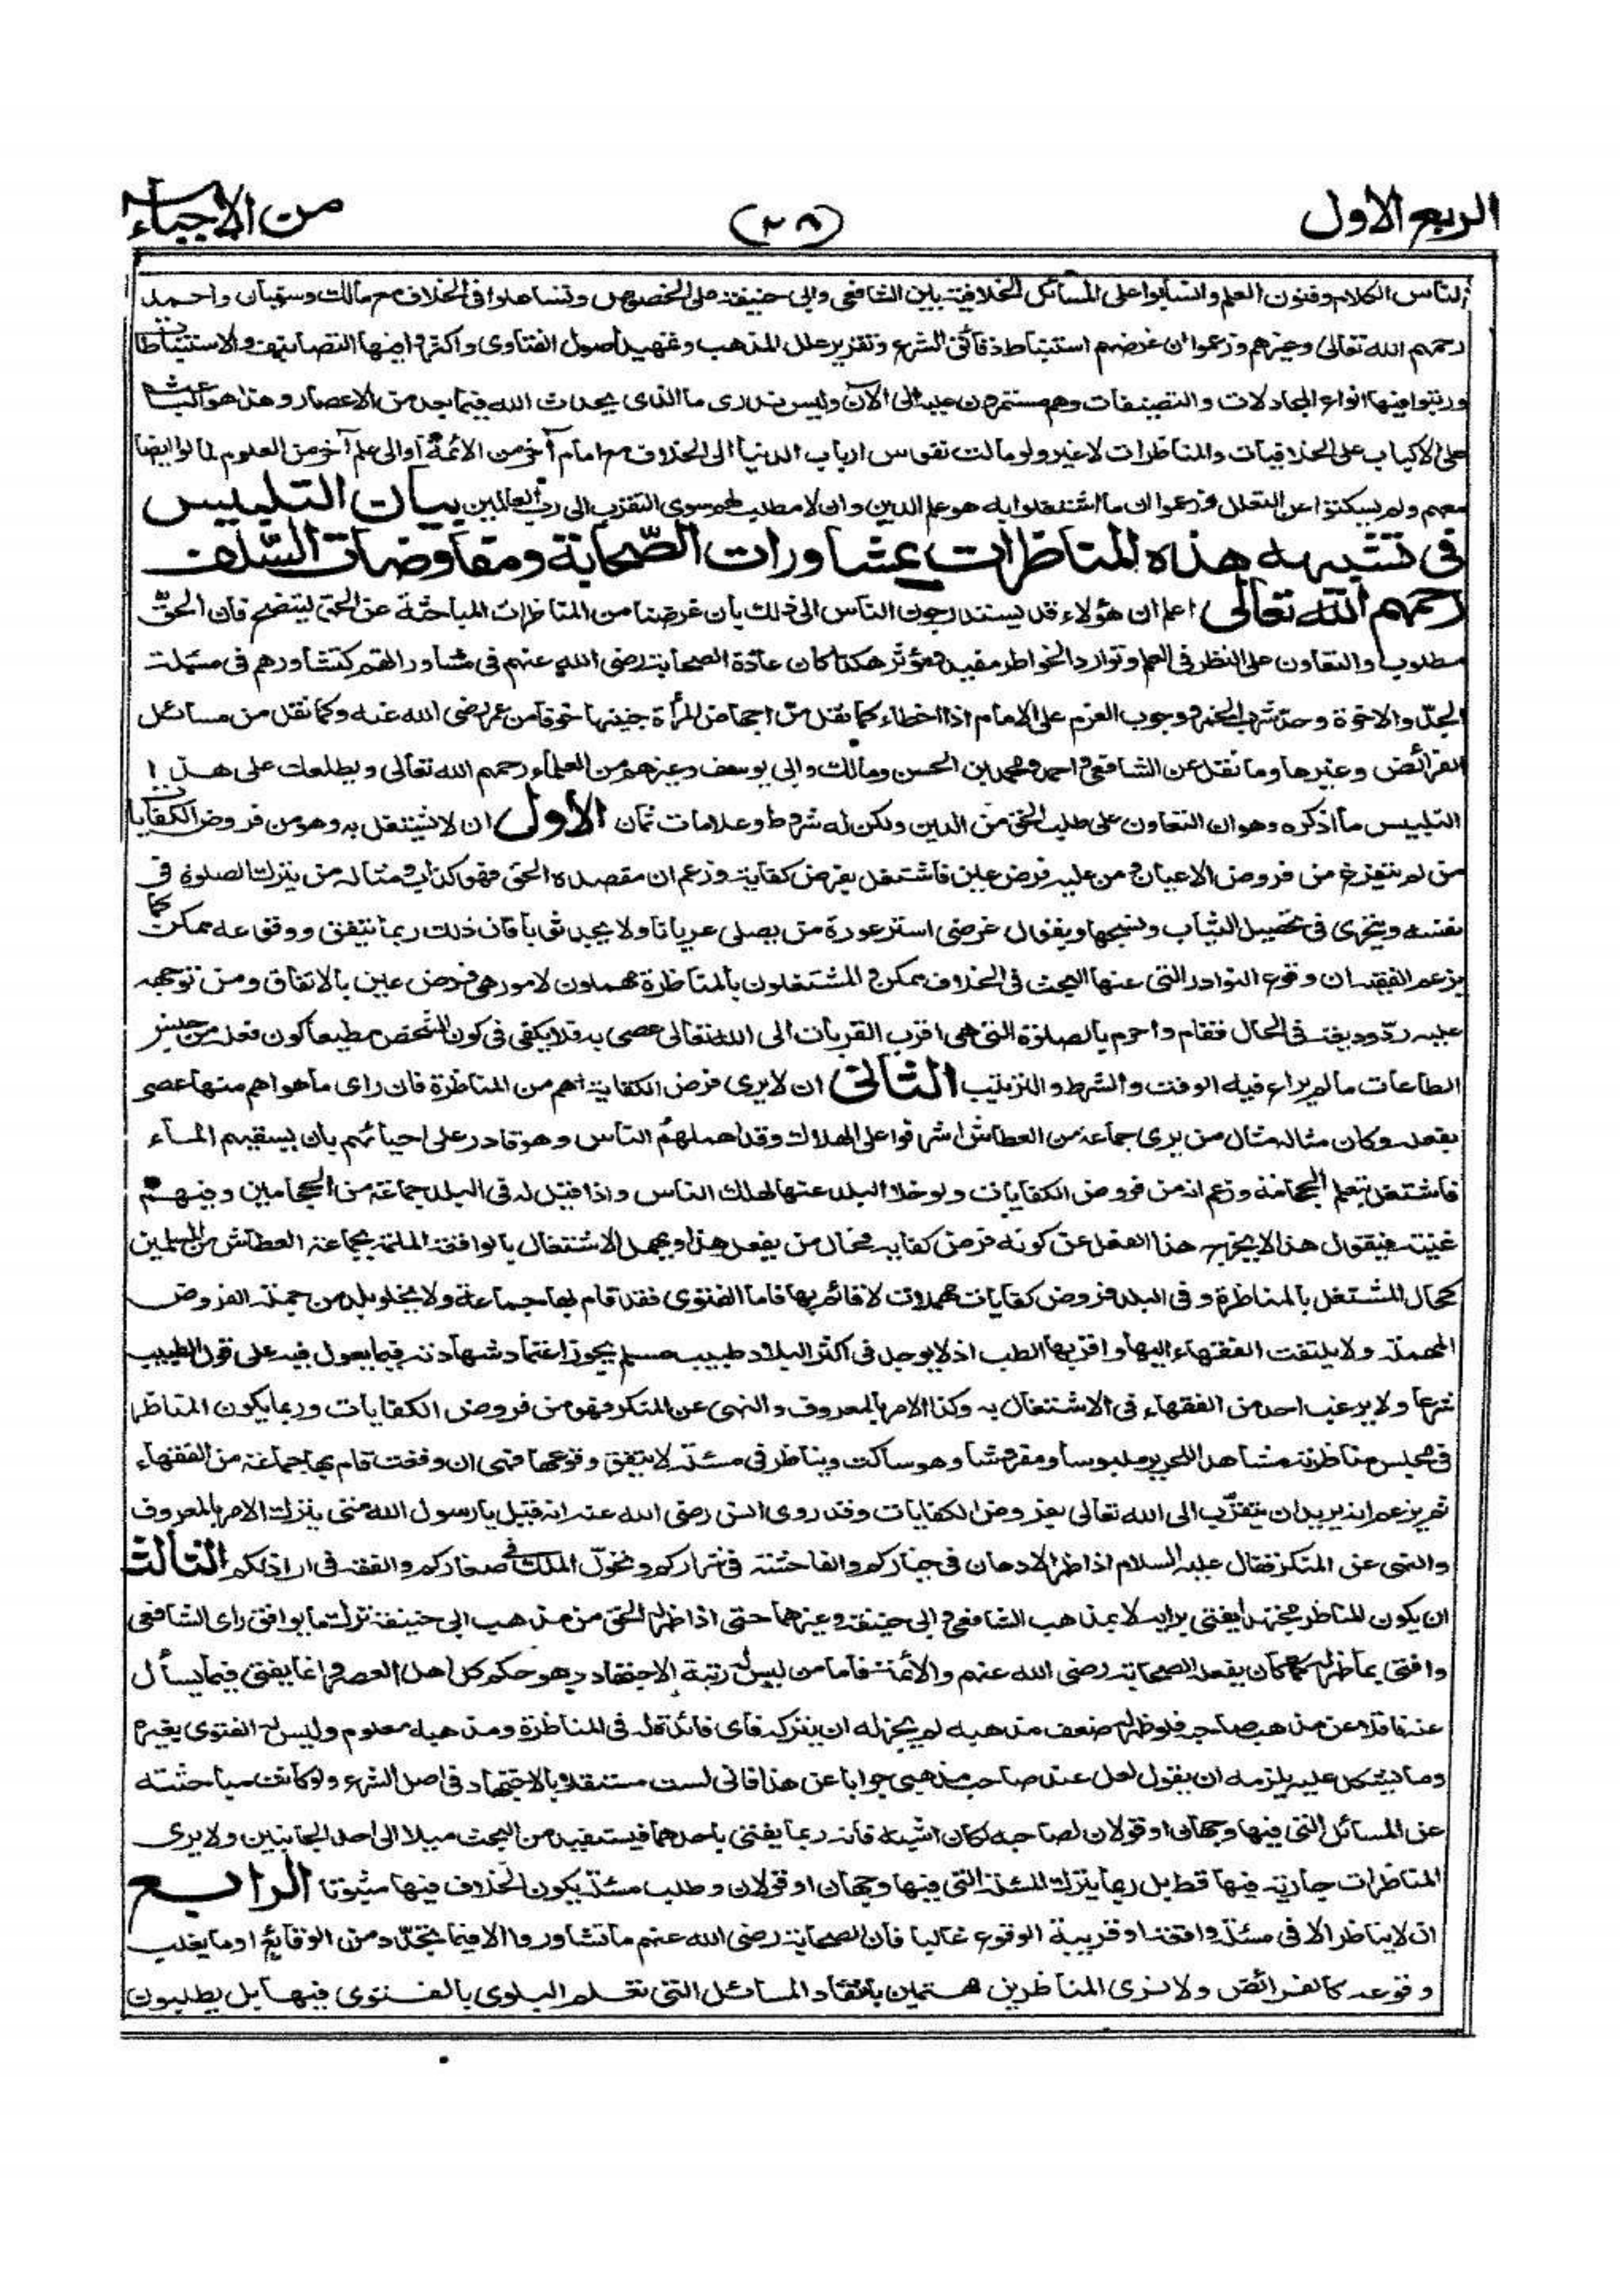 الربع الاول
(٢٨)
من الاحياء
الناس الكلام وفنون العلم وانثالوا على المسائل الخلافية بين الشافعي وابي حنيفة على الخصوص وتساهلوا في الخلاف مع مالك وسفيان واحمد
رحمهم الله تعالى وغيرهم وزعموا ان غرضهم استنباط دقائق الشرع وتقرير علل المذهب وتمهيد اصول الفتاوى واكثروا فيها التصانيف والاستنباطات
ورتبوا فيها انواع المجادلات والتصنيفات وهم مستمرون عليه الى الآن وليس ندرى ما الذى يحدث الله فيما بعد من الاعصار وهذا هو الباعث
على الاكباب على الخلافيات والمناظرات لا غير ولو مالت نفوس ارباب الدنيا الى الخلاف مع امام آخر من الائمة او الى علم آخر من العلوم لمالوا ايضا
معهم ولم يسكتوا عن التعلل وزعموا ان ما اشتغلوا به هو علم الدين وان لا مطلب لهم سوى التقرب الى رب العالمين بيان التلبيس
فى تشبيه هذه المناظرات بمشاورات الصّحابة ومفاوضات السّلف
رحمهم الله تعالى اعلم ان هؤلاء قد يستدرجون الناس الى ذلك بان غرضنا من المناظرات المباحثة عن الحق ليتضح فان الحقّ
مطلوب والتعاون على النظر فى العلم وتوارد الخواطر مفيد ومؤثر هكذا كان عادة الصحابة رضى الله عنهم فى مشاوراتهم كتشاورهم فى مسئلة
الجدّ والاخوة وحدّ شرب الخمر ووجوب الغرم على الامام اذا اخطاء كما نقل من اجهاض المرأة جنينها خوفا من عمر رضى الله عنه وكما نقل من مسائل
الفرائض وغيرها وما نقل عن الشافعى واحمد ومحمد بن الحسن ومالك وابى يوسف وغيرهم من العلماء رحمهم الله تعالى ويطلعك على هذا
التلبيس ما اذكره وهو ان التعاون على طلب الحق من الدين ولكن له شروط وعلامات ثمان الاول ان لا يشتغل به وهو من فروض الكفايات
من لم يتفرغ من فروض الاعيان ومن عليه فرض عين فاشتغل بفرض كفاية وزعم ان مقصده الحق فهو كذاب ومثاله من يترك الصلوة فى
نفسه ويتجرى فى تحصيل الثياب ونسجها ويقول غرضى استر عورة من يصلى عريانا ولا يجد ثوبا فان ذلك ربما يتفق ووقوعه ممكن كما
يزعم الفقيه ان وقوع النوادر التى عنها البحث فى الخلاف ممكن والمشتغلون بالمناظرة مهملون لامور هى فرض عين بالاتفاق ومن توجه
عليه ردّ وديعة فى الحال فقام واحرم بالصلوة التى هى اقرب القربات الى الله تعالى عصى به فلا يكفى فى كون الشخص مطيعا كون فعله من جنس
الطاعات ما لم يراع فيه الوقت والشرط والترتيب الثانى ان لا يرى فرض الكفاية اهم من المناظرة فان راى ما هو اهم منها عصى
بفعله وكان مثاله مثال من يرى جماعة من العطاش اشرفوا على الهلاك وقد اهملهم الناس وهو قادر على احيائهم بان يسقيهم الماء
فاشتغل بتعلم الحجامة وزعم انه من فروض الكفايات ولو خلا البلد عنها لهلك الناس واذا قيل له فى البلد جماعة من الحجامين وفيهم
غنية فيقول هذا لا يخرج هذا الفعل عن كونه فرض كفاية فحال من يفعل هذا ويهمل الاشتغال بالواقعة الملمة بجماعة العطاش من المسلمين
كحال المشتغل بالمناظرة وفى البلد فروض كفايات مهملات لا قائم بها فاما الفتوى فقد قام بها جماعة ولا يخلو بلد من جملة الفروض
المهملة ولا يلتفت الفقهاء اليها واقربها الطب اذ لا يوجد فى اكثر البلاد طبيب مسلم يجوز اعتماد شهادته فيما يعول فيه على قول الطبيب
شرعا ولا يرغب احد من الفقهاء فى الاشتغال به وكذا الامر بالمعروف والنهى عن المنكر فهو من فروض الكفايات وربما يكون المناظر
فى مجلس مناظرته مشاهدا للحرير ملبوسا ومفروشا وهو ساكت ويناظر فى مسئلة لا يتفق وقوعها فهى ان وقعت قام بها جماعة من الفقهاء
ثم يزعم انه يريد ان يتقرّب الى الله تعالى بفروض الكفايات وقد روى انس رضى الله عنه انه قيل يا رسول الله متى يترك الامر بالمعروف
والنهى عن المنكر فقال عليه السلام اذا ظهر الادهان فى خياركم والفاحشة فى شراركم وتحوّل الملك فى صغاركم والفقه فى اراذلكم الثالث
ان يكون المناظر مجتهدا يفتى برايه لا بمذهب الشافعى وابى حنيفة وغيرهما حتى اذا ظهر له الحق من مذهب ابى حنيفة ترك ما يوافق راى الشافعى
وافتى بما ظهر له كما كان يفعله الصحابة رضى الله عنهم والائمة فاما من ليس له رتبة الاجتهاد وهو حكم كل اهل العصر وانما يفتى فيما يسأل
عنه ناقلا عن مذهب صاحبه فلو ظهر له ضعف مذهبه لم يجز له ان يتركه فاى فائدة له فى المناظرة ومذهبه معلوم وليس له الفتوى بغيره
وما يشكل عليه يلزمه ان يقول لعل عند صاحب مذهبى جوابا عن هذا فانى لست مستقلا بالاجتهاد فى اصل الشرع ولو كانت مباحثته
عن المسائل التى فيها وجهان او قولان لصاحبه لكان اشبه فانه ربما يفتى باحدهما فيستفيد من البحث ميلا الى احد الجانبين ولا يرى
المناظرات جارية فيها قط بل ربما يترك المسئلة التى فيها وجهان او قولان وطلب مسئلة يكون الخلاف فيها مبتوتا الرابع
ان لا يناظر الا فى مسئلة واقعة او قريبة الوقوع غالبا فان الصحابة رضى الله عنهم ما تشاوروا الا فيما يتجدّد من الوقايع او ما يغلب
وقوعه كالفرائض ولا نرى المناظرين مهتمين بانتقاد المسائل التى تعلم البلوى بالفتوى فيها بل يطلبون